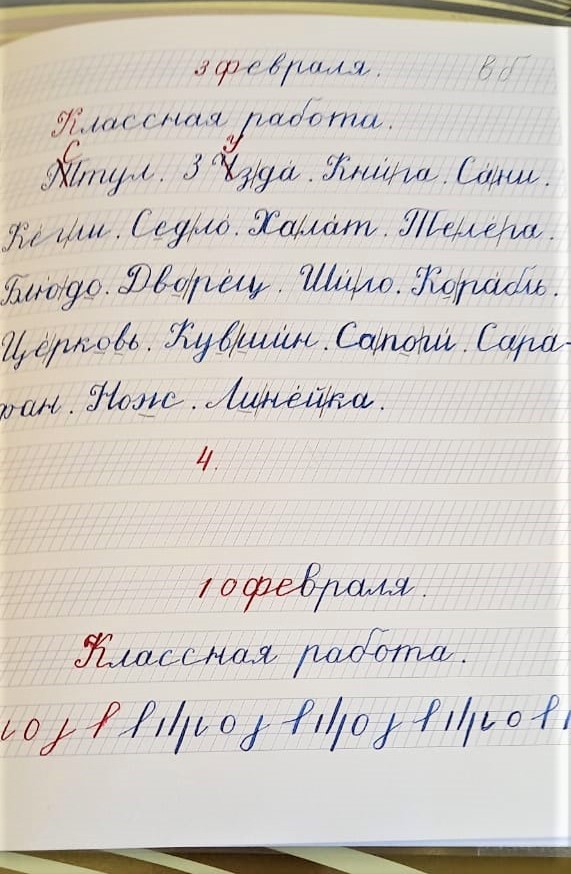 3 февраля. В б
Классная работа.
Стул. З Узда. Книга. Сани.
Кегли. Седло. Халат. Телега.
Блюдо. Дворец. Шило. Корабль.
Церковь. Кувшин. Сапоги. Сара-
фан. Нож. Линейка.
4.
10 февраля.
Классная работа.